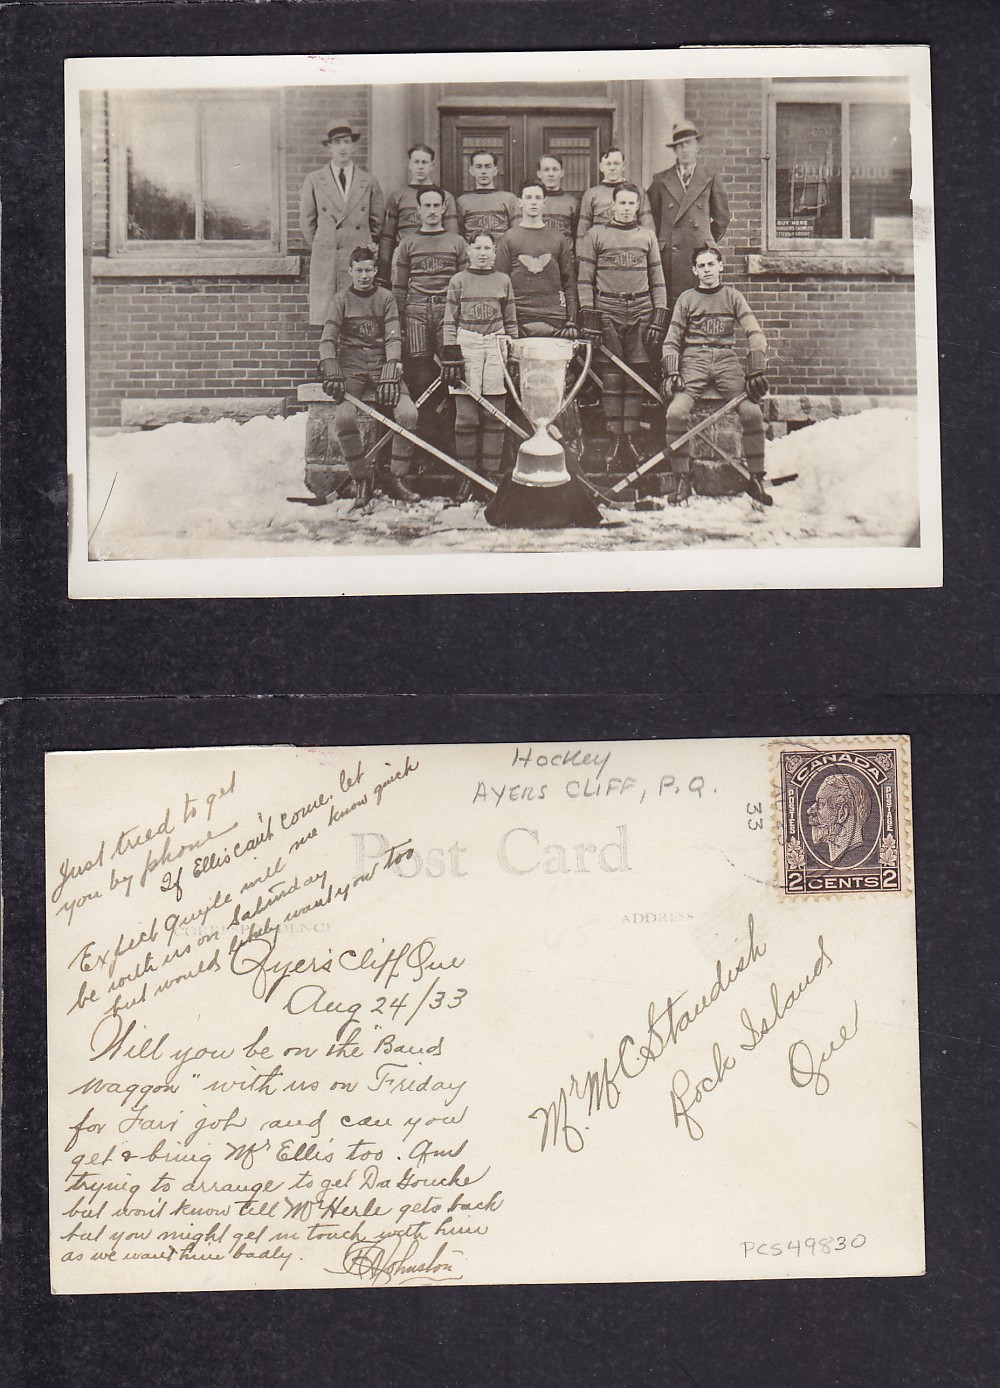 30,000,000
BUY HERE
ACHS
ACHS
ACHS
ACHS
ACHS
ACHS
Hockey
AYERS CLIFF, P.Q.
33
CANADA
POSTES
POSTAGE
2 CENTS 2
Post Card
CORRESPONDENCE
ADDRESS
Just tried to get
you by phone
If Ellis can't come let
me know quick
Expect Quyle will
be with us on Saturday
but would likely want you too
Ayers Cliff Que
Aug 24/33
Will you be on the "Band
Waggon" with us on Friday
for Fair job and can you
get & bring Mr Ellis too. Am
trying to arrange to get Da Gouche
but won't know till Mr Herle gets back
but you might get in touch with him
as we want him badly.
Johnston
Mr. M C Standish
Rock Island
Que
PCS49830